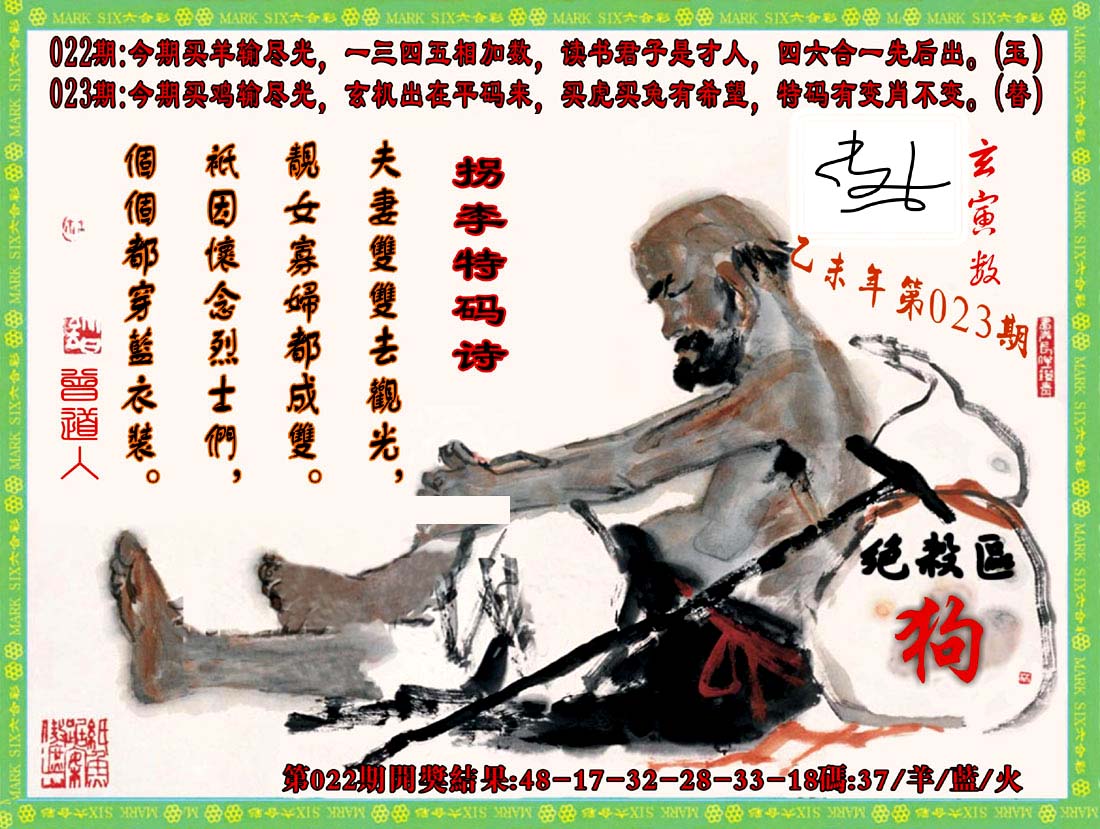 MARK SIX六合彩
022期:今期买羊输尽光，一三四五相加数，读书君子是才人，四六合一先后出。(玉)
023期:今期买鸡输尽光，玄机出在平码来，买虎买兔有希望，特码有变肖不变。(替)
玄寅数
乙未年第023期
拐李特码诗
夫妻雙雙去觀光，
靚女寡婦都成雙。
衹因懷念烈士們，
個個都穿藍衣裝。
曾道人
绝殺區
狗
第022期開獎結果:48-17-32-28-33-18碼:37/羊/藍/火